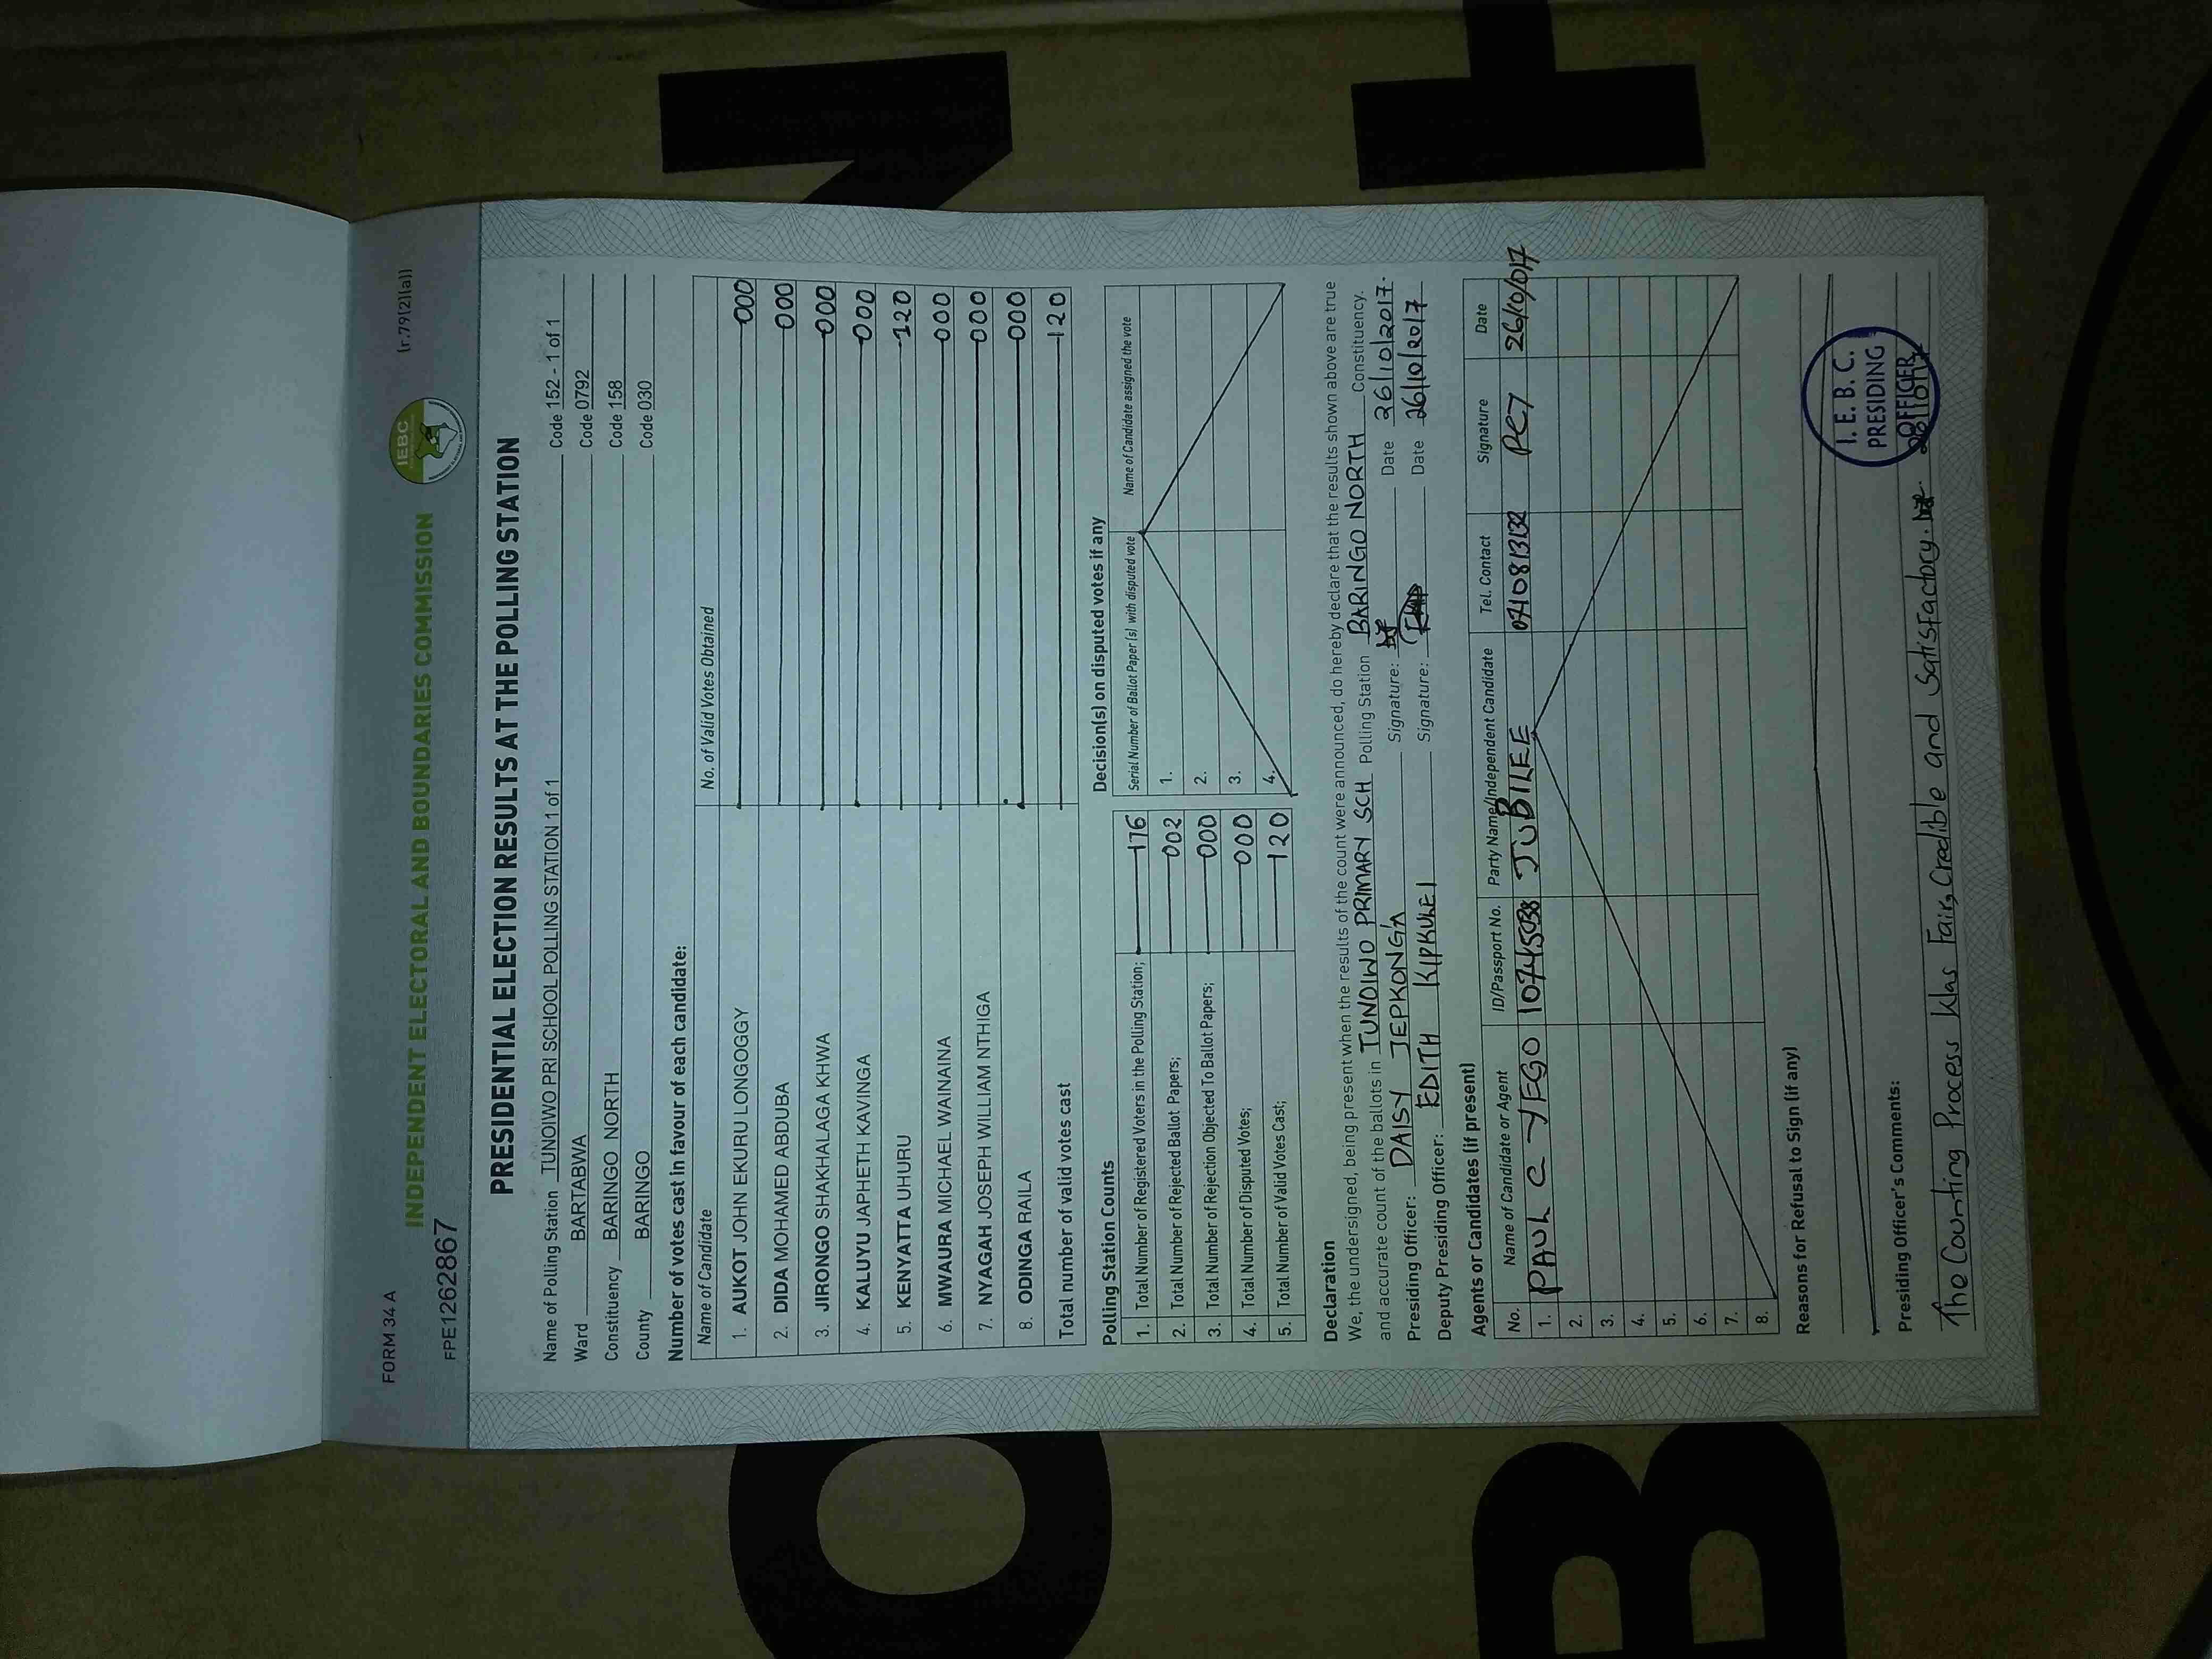 FORM 34 A
INDEPENDENT ELECTORAL AND BOUNDARIES COMMISSION
IEBC
(r.79(2)(a))
FPE1262867
PRESIDENTIAL ELECTION RESULTS AT THE POLLING STATION
Name of Polling Station TUNOIWO PRI SCHOOL POLLING STATION 1 of 1 Code 152 - 1 of 1
Ward BARTABWA Code 0792
Constituency BARINGO NORTH Code 158
County BARINGO Code 030
Number of votes cast in favour of each candidate:
Name of Candidate No. of Valid Votes Obtained
1. AUKOT JOHN EKURU LONGOGGY 000
2. DIDA MOHAMED ABDUBA 000
3. JIRONGO SHAKHALAGA KHWA 000
4. KALUYU JAPHETH KAVINGA 000
5. KENYATTA UHURU 120
6. MWAURA MICHAEL WAINAINA 000
7. NYAGAH JOSEPH WILLIAM NTHIGA 000
8. ODINGA RAILA 000
Total number of valid votes cast 120
Polling Station Counts
1. Total Number of Registered Voters in the Polling Station; 176
2. Total Number of Rejected Ballot Papers; 002
3. Total Number of Rejection Objected To Ballot Papers; 000
4. Total Number of Disputed Votes; 000
5. Total Number of Valid Votes Cast; 120
Decision(s) on disputed votes if any
Serial Number of Ballot Paper(s) with disputed vote Name of Candidate assigned the vote
1.
2.
3.
4.
Declaration
We, the undersigned, being present when the results of the count were announced, do hereby declare that the results shown above are true
and accurate count of the ballots in TUNOIWO PRIMARY SCH Polling Station BARINGO NORTH Constituency.
Presiding Officer: DAISY JEPKONGA Signature: Date 26/10/2017
Deputy Presiding Officer: EDITH KIPKULEI Signature: Date 26/10/2017
Agents or Candidates (if present)
No. Name of Candidate or Agent ID/Passport No. Party Name/Independent Candidate Tel. Contact Signature Date
1. PAUL C YEGO JUBILEE 0710813132 26/10/017
2.
3.
4.
5.
6.
7.
8.
Reasons for Refusal to Sign (if any)
Presiding Officer's Comments:
The Counting Process Was Fair, Credible and Satisfactory.
I. E. B. C.
PRESIDING
OFFICER